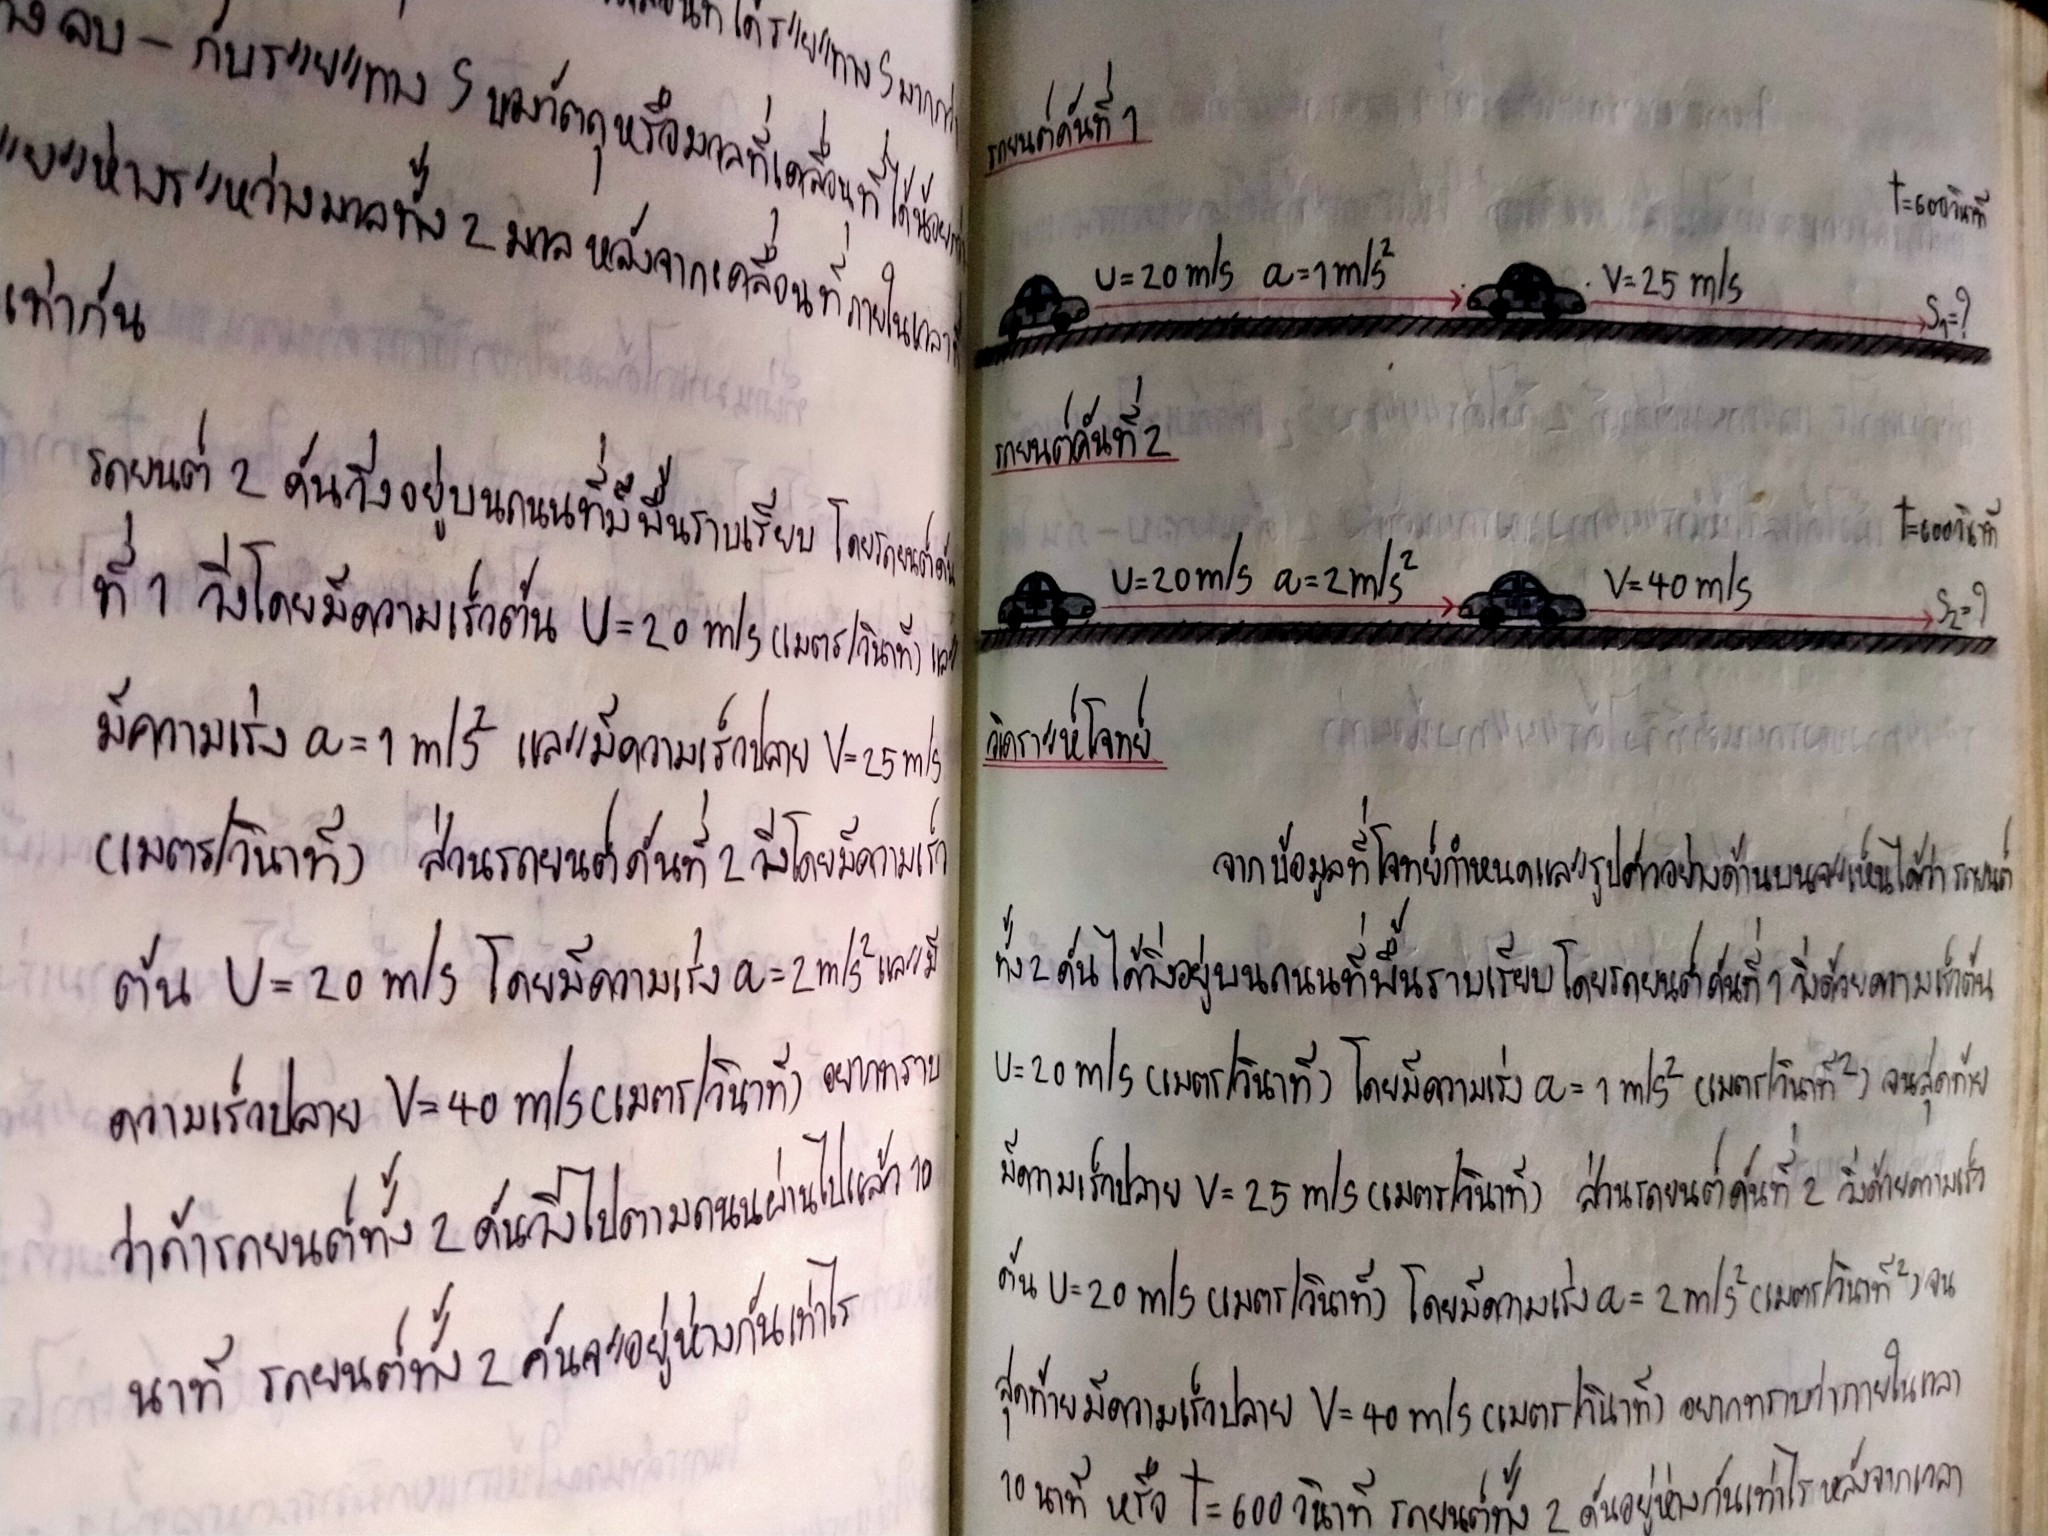 ได้ระยะทาง S มากกว่า
ลบ - กับระยะทาง S ของวัตถุหรือมวลที่เคลื่อนที่ได้น้อยกว่า
ระยะห่างระหว่างมวลทั้ง 2 มวล หลังจากเคลื่อนที่ภายในเวลาที่
เท่ากัน
รถยนต์ 2 คันวิ่งอยู่บนถนนที่มีพื้นราบเรียบ โดยรถยนต์คัน
ที่ 1 วิ่งโดยมีความเร็วต้น U = 20 m/s (เมตร/วินาที) และ
มีความเร่ง a = 1 m/s² และมีความเร็วปลาย V = 25 m/s
(เมตร/วินาที) ส่วนรถยนต์คันที่ 2 วิ่งโดยมีความเร็ว
ต้น U = 20 m/s โดยมีความเร่ง a = 2 m/s² และมี
ความเร็วปลาย V = 40 m/s (เมตร/วินาที) อยากทราบ
ว่าถ้ารถยนต์ทั้ง 2 คันวิ่งไปตามถนนผ่านไปแล้ว 10
นาที รถยนต์ทั้ง 2 คันจะอยู่ห่างกันเท่าไร
รถยนต์คันที่ 1
t = 600 วินาที
U = 20 m/s a = 1 m/s² V = 25 m/s S₁ = ?
รถยนต์คันที่ 2
t = 600 วินาที
U = 20 m/s a = 2 m/s² V = 40 m/s S₂ = ?
วิเคราะห์โจทย์
จากข้อมูลที่โจทย์กำหนดและรูปตัวอย่างด้านบนจะเห็นได้ว่า รถยนต์
ทั้ง 2 คัน ได้วิ่งอยู่บนถนนที่พื้นราบเรียบโดยรถยนต์คันที่ 1 วิ่งด้วยความเร็วต้น
U = 20 m/s (เมตร/วินาที) โดยมีความเร่ง a = 1 m/s² (เมตร/วินาที²) จนสุดท้าย
มีความเร็วปลาย V = 25 m/s (เมตร/วินาที) ส่วนรถยนต์คันที่ 2 วิ่งด้วยความเร็ว
ต้น U = 20 m/s (เมตร/วินาที) โดยมีความเร่ง a = 2 m/s² (เมตร/วินาที²) จน
สุดท้ายมีความเร็วปลาย V = 40 m/s (เมตร/วินาที) อยากทราบว่าภายในเวลา
10 นาที หรือ t = 600 วินาที รถยนต์ทั้ง 2 คันอยู่ห่างกันเท่าไร หลังจากเวลา